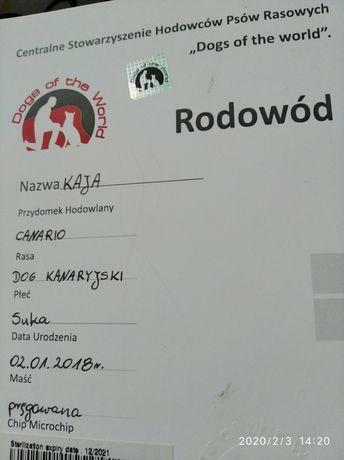 Centralne Stowarzyszenie Hodowców Psów Rasowych
„Dogs of the world”.
Dogs of the World
Rodowód
Nazwa KAJA
Przydomek Hodowlany
CANARIO
Rasa
DOG KANARYJSKI
Płeć
Suka
Data Urodzenia
02.01.2018r.
Maść
pręgowana
Chip Microchip
Sterilization expiry date 12/2021
2020/2/3 14:20